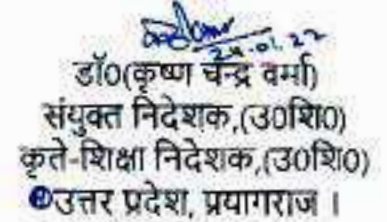 24.01.22
डॉ0(कृष्ण चन्द्र वर्मा)
संयुक्त निदेशक,(उ0शि0)
कृते-शिक्षा निदेशक,(उ0शि0)
उत्तर प्रदेश, प्रयागराज ।